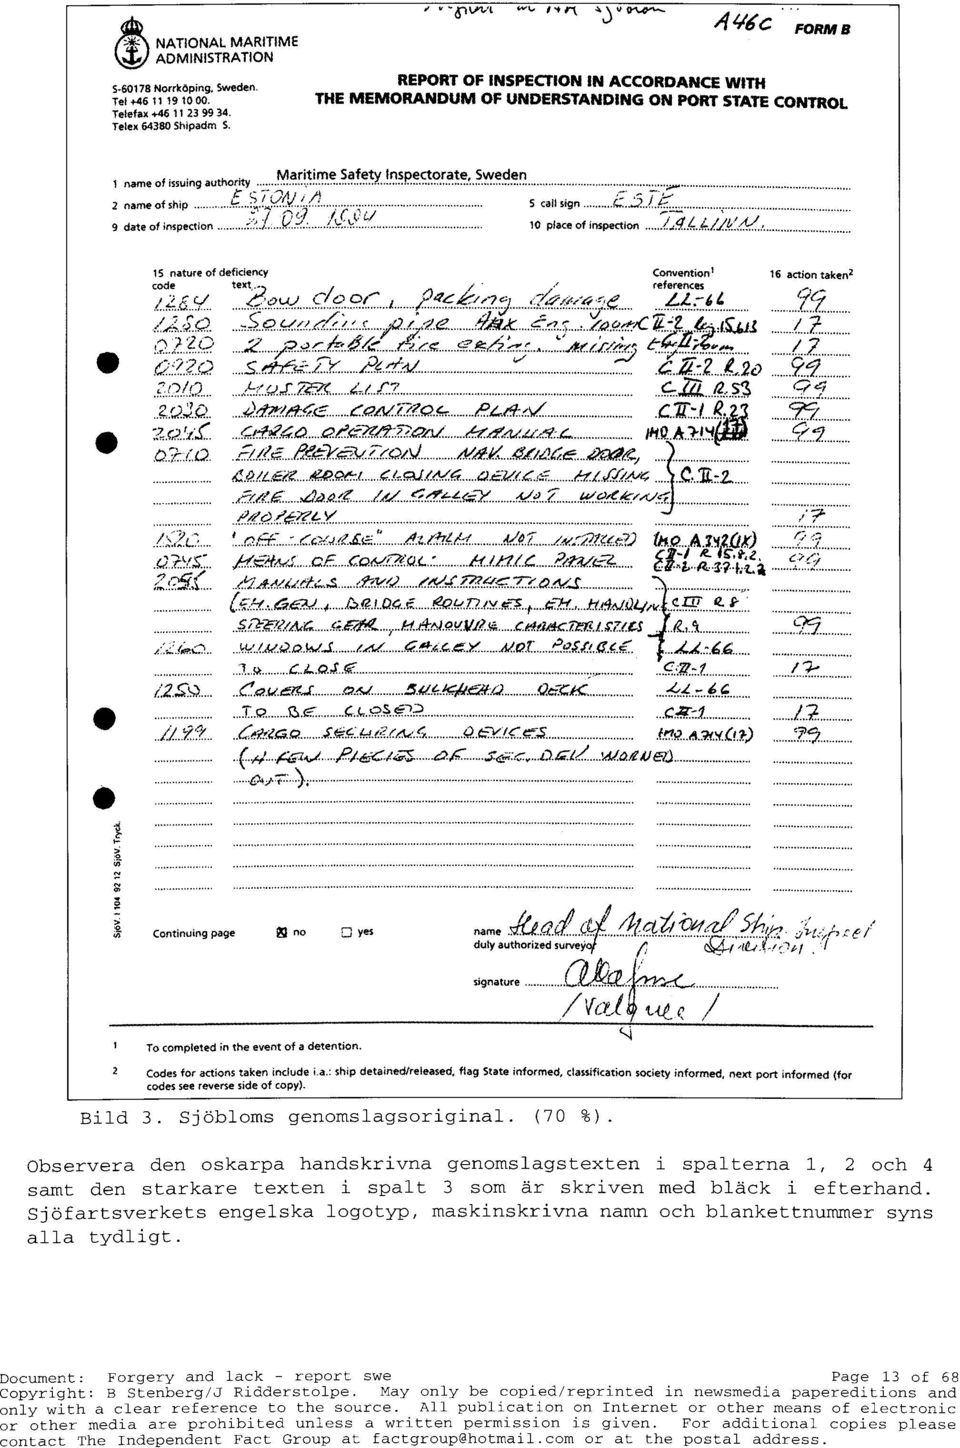 A46C FORM B
NATIONAL MARITIME
ADMINISTRATION
S-60178 Norrköping, Sweden.
Tel +46 11 19 10 00.
Telefax +46 11 23 99 34.
Telex 64380 Shipadm S.
REPORT OF INSPECTION IN ACCORDANCE WITH
THE MEMORANDUM OF UNDERSTANDING ON PORT STATE CONTROL
1 name of issuing authority Maritime Safety Inspectorate, Sweden
2 name of ship ESTONIA 5 call sign ESTE
9 date of inspection 09 10 place of inspection TALLINN.
15 nature of deficiency Convention1 16 action taken2
code text references
1284 Bow door, packing damage LL-66 99
1250 Sounding pipe Aux Eng. room C II-2 Reg. 17
0720 2 portable fire exting. missing 17
0920 SAFETY PLAN C II-2 R.20 99
2010 MUSTER LIST C III R.53 99
2030 DAMAGE CONTROL PLAN C II-1 R.23 99
2045 CARGO OPERATION MANUAL IMO A 714 99
0710 FIRE PREVENTION NAV. BRIDGE DOOR,
BOILER ROOM CLOSING DEVICE MISSING C. II-2
FIRE DOOR IN GALLEY NOT WORKING
PROPERLY 17
"OFF-COURSE" ALARM NOT INSTALLED IMO A 342(IX) 99
0745 MEANS OF CONTROL. MIMIC PANEL C II-1 R 15.8.2. 99
C II-2 R.37.1.2.2
2055 MANUALS AND INSTRUCTIONS
(EM. GEN, BRIDGE ROUTINES, EM. HANDLING C III R 8
STEERING GEAR, MANOUVRE CHARACTERISTICS R.9 99
1260 WINDOWS IN GALLEY NOT POSSIBLE LL-66
TO CLOSE C.II-1 17
1250 COVERS ON BULKHEAD DECK LL-66
TO BE CLOSED C II-1 17
1199 CARGO SECURING DEVICES IMO A 714(17) 99
(A FEW PIECIES OF SEC. DEV WORNED
OUT).
SjöV. I 104 92 12 SjöV. Tryck.
Continuing page no yes name Head of National Ship Inspect
duly authorized surveyor Division
signature
/Valgree/
1 To completed in the event of a detention.
2 Codes for actions taken include i.a.: ship detained/released, flag State informed, classification society informed, next port informed (for
codes see reverse side of copy).
Bild 3. Sjöbloms genomslagsoriginal. (70 %).
Observera den oskarpa handskrivna genomslagstexten i spalterna 1, 2 och 4
samt den starkare texten i spalt 3 som är skriven med bläck i efterhand.
Sjöfartsverkets engelska logotyp, maskinskrivna namn och blankettnummer syns
alla tydligt.
Document: Forgery and lack - report swe Page 13 of 68
Copyright: B Stenberg/J Ridderstolpe. May only be copied/reprinted in newsmedia papereditions and
only with a clear reference to the source. All publication on Internet or other means of electronic
or other media are prohibited unless a written permission is given. For additional copies please
contact The Independent Fact Group at factgroup@hotmail.com or at the postal address.